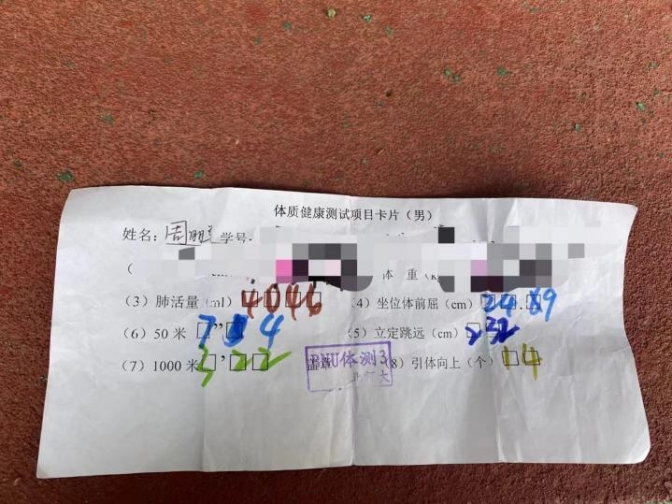 体质健康测试项目卡片（男）
姓名: 周 学号.
体 重
(3) 肺活量（ml）4046 (4）坐位体前屈（cm）
(6) 50 米 7"84 (5）立定跳远（cm）232
(7) 1000 米 3'22 (8）引体向上（个）14
体测3